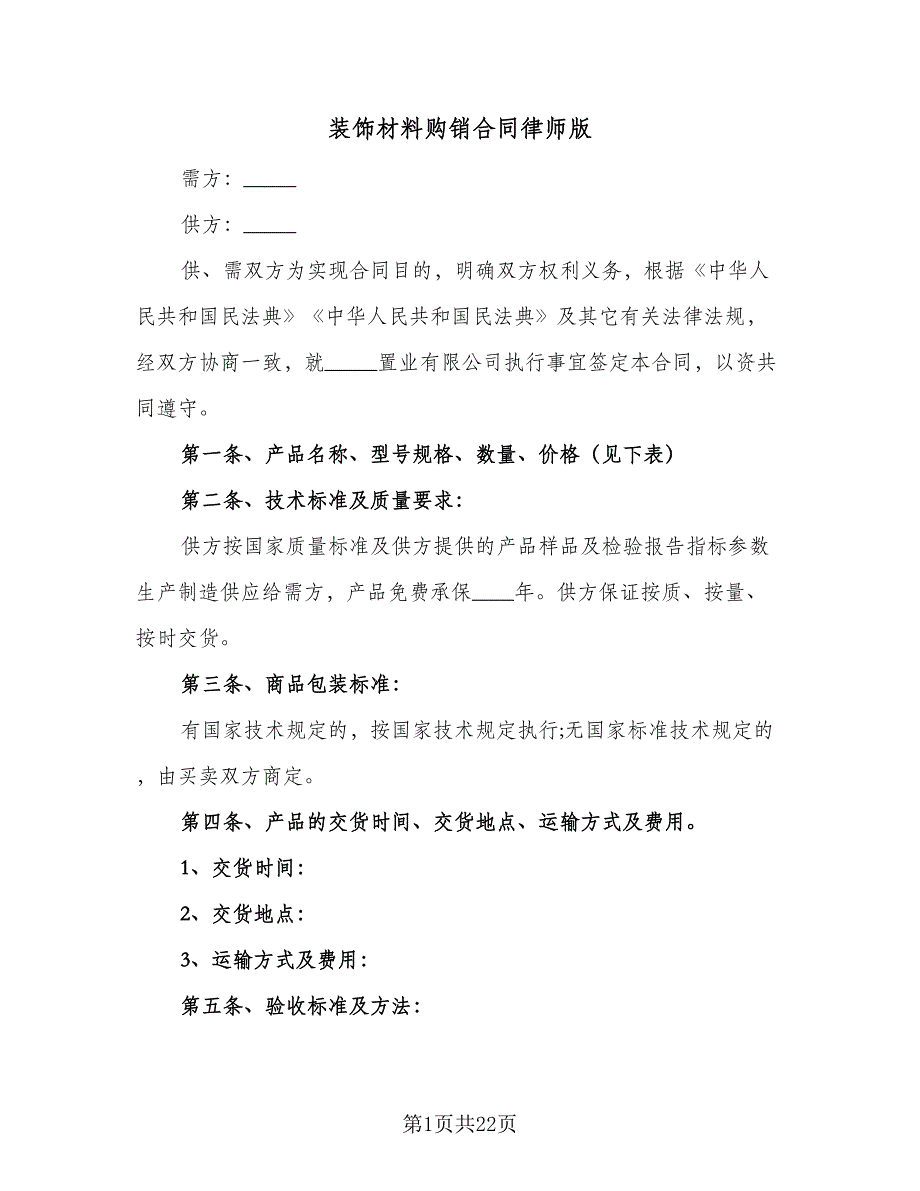 装饰材料购销合同律师版
需方：_____
供方：_____
供、需双方为实现合同目的，明确双方权利义务，根据《中华人
民共和国民法典》《中华人民共和国民法典》及其它有关法律法规，
经双方协商一致，就_____置业有限公司执行事宜签定本合同，以资共
同遵守。
第一条、产品名称、型号规格、数量、价格（见下表）
第二条、技术标准及质量要求：
供方按国家质量标准及供方提供的产品样品及检验报告指标参数
生产制造供应给需方，产品免费承保____年。供方保证按质、按量、
按时交货。
第三条、商品包装标准：
有国家技术规定的，按国家技术规定执行;无国家标准技术规定的
，由买卖双方商定。
第四条、产品的交货时间、交货地点、运输方式及费用。
1、交货时间：
2、交货地点：
3、运输方式及费用：
第五条、验收标准及方法：
第1页共22页